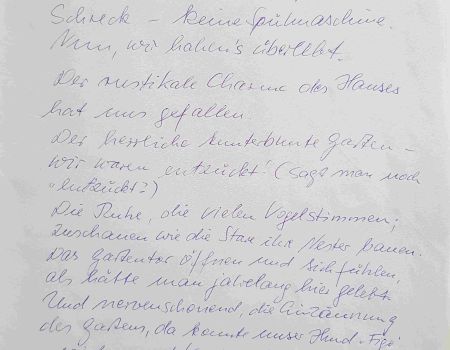 Schreck – keine Spülmaschine.
Nun, wir haben's überlebt.
Der rustikale Charme des Hauses
hat uns gefallen.
Der herrliche kunterbunte Garten –
wir waren entzückt! (sagt man noch
"entzückt?)
Die Ruhe, die vielen Vogelstimmen;
zuschauen wie die Stare ihr Nester bauen.
Das Gartentor öffnen und sich fühlen,
als hätte man jahrelang hier gelebt.
Und nervenschonend, die Einzäunung
des Gartens, da konnte unser Hund "Figo"